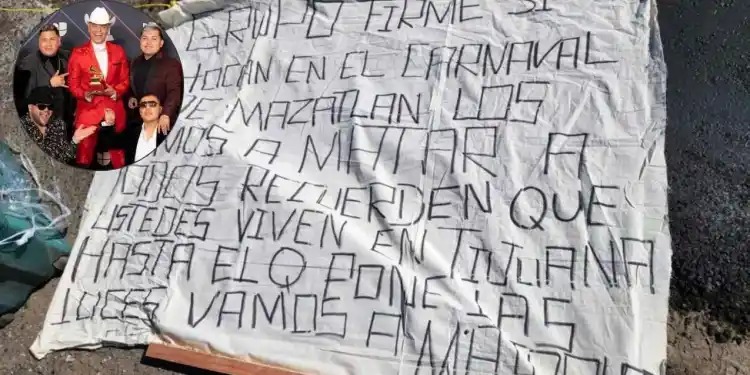 GRUPO FIRME SI
TOCAN EN EL CARNAVAL
DE MAZATLAN LOS
VAMOS A MATAR A
TODOS RECUERDEN QUE
USTEDES VIVEN EN TIJUANA
HASTA EL Q PONE LAS
LUCES VAMOS A